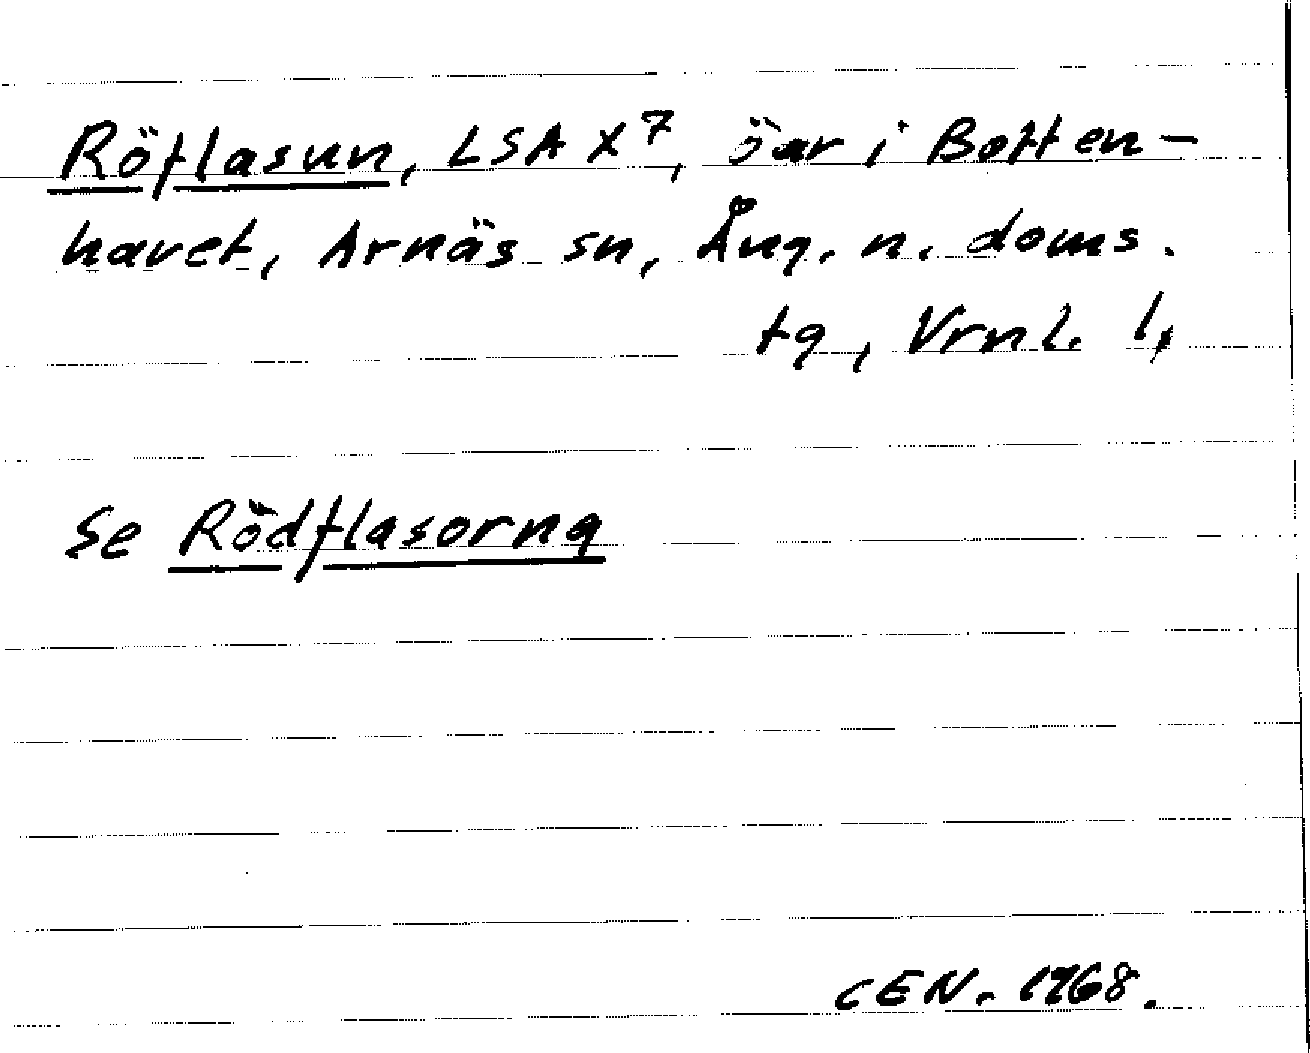 Röflasun, LSA X 7, öar i Botten-
havet, Arnäs sn, Ång. n. doms.
tg, Vrnl. l,
Se Rödflasorna
CEN. 1968.